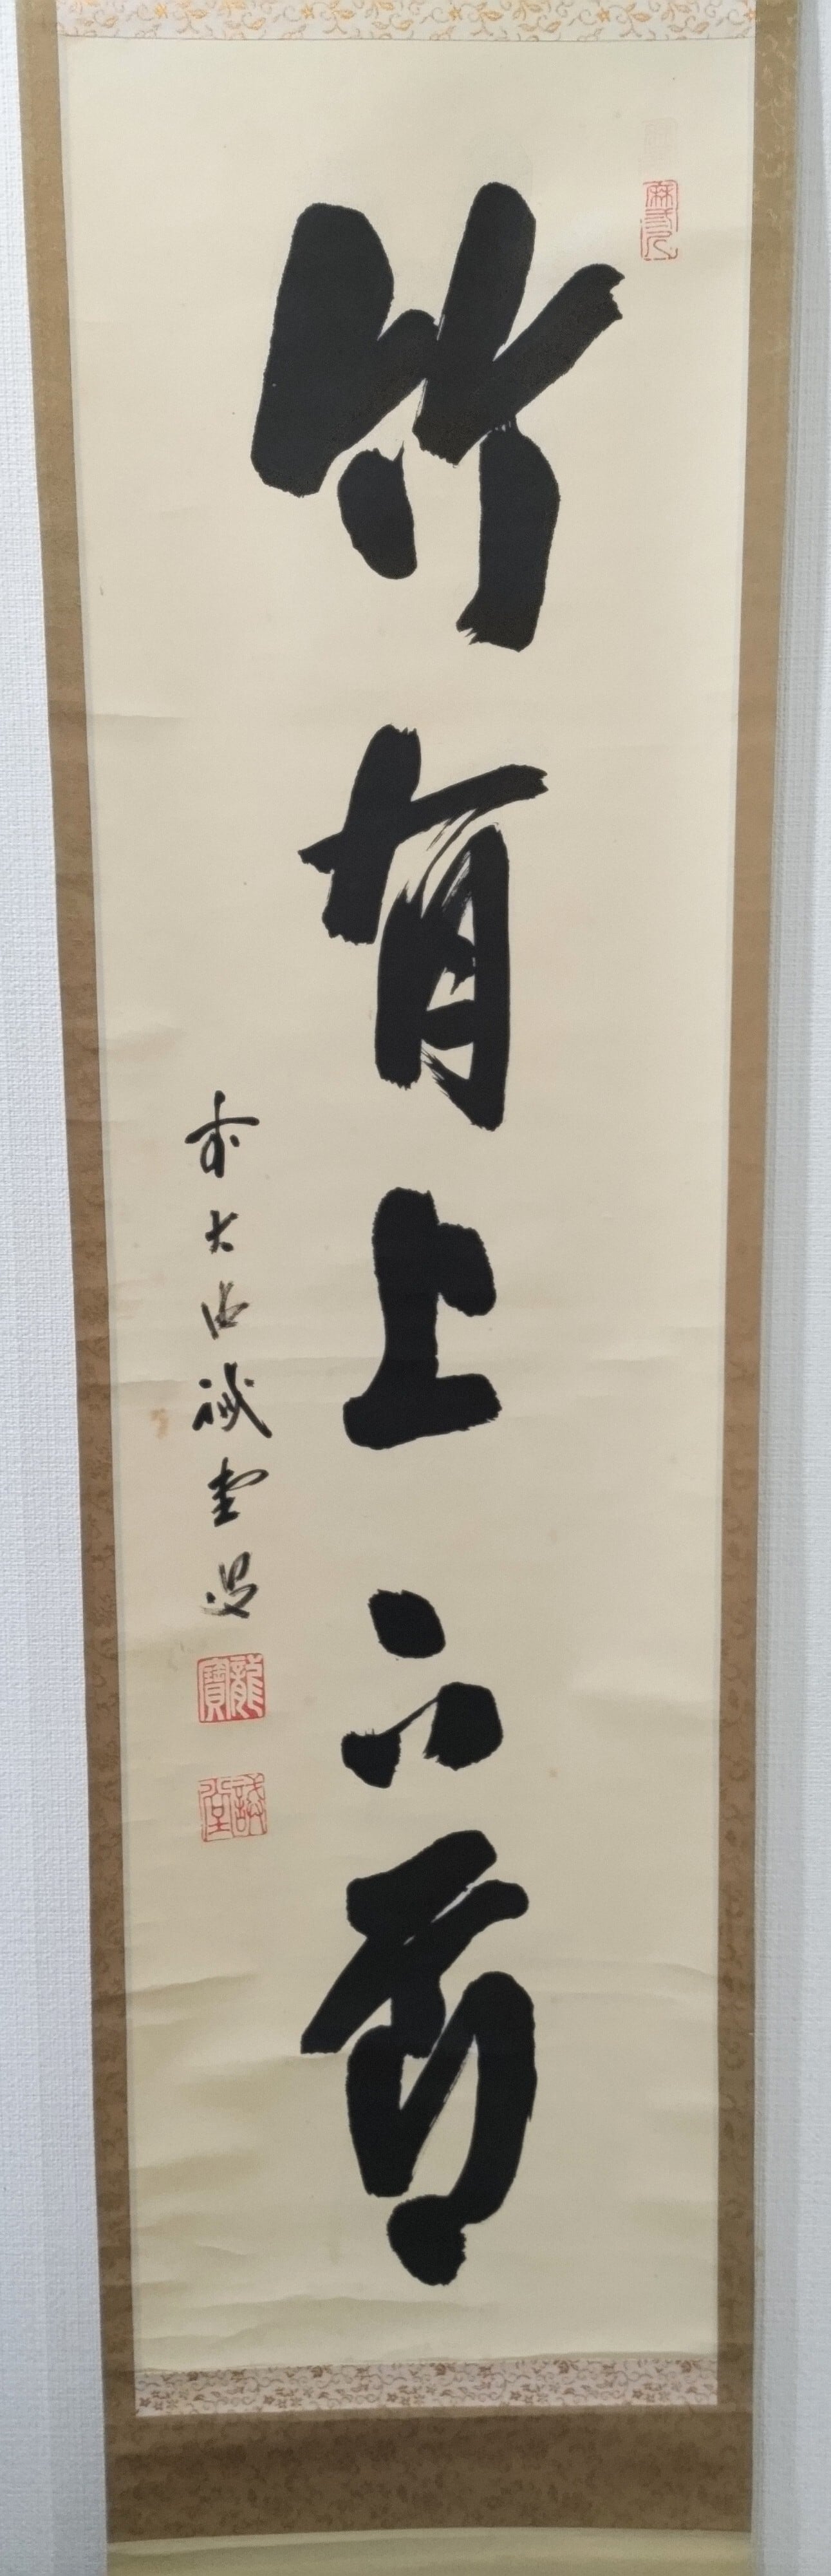 竹有上下節
前大徳誠堂書
龍寶
誠堂